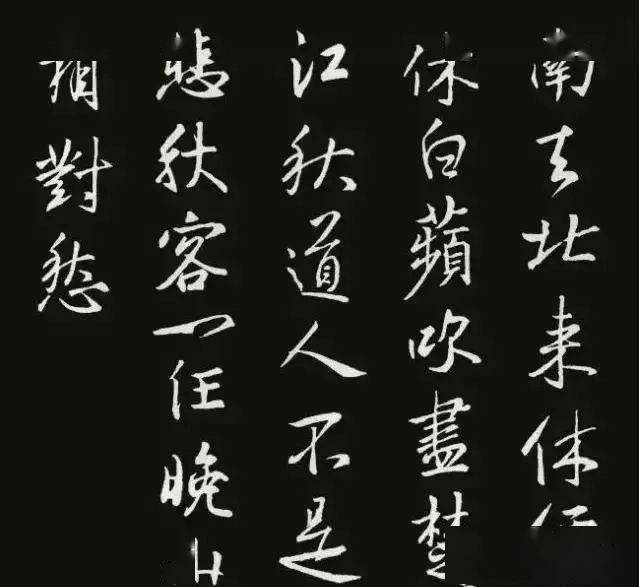 南去北来休
休白蘋吹盡楚
江秋道人不是
悲秋客一任晚
相對愁